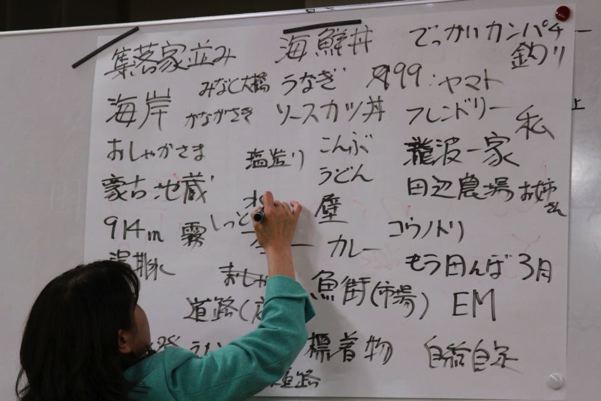 集落家並み
海鮮丼
でっかいカンパチー
釣り
海岸
みなと大橋
かながさき
うなぎ
999:ヤマト
ソースカツ丼
フレンドリー
私
おしゃかさま
塩造り
こんぶ
うどん
難波一家
蒙古地蔵
田辺農場
お姉さん
914m
霧
壁
カレー
コウノトリ
温排水
もう田んぼ
3月
道路
魚街(市場)
EM
標着物
道路